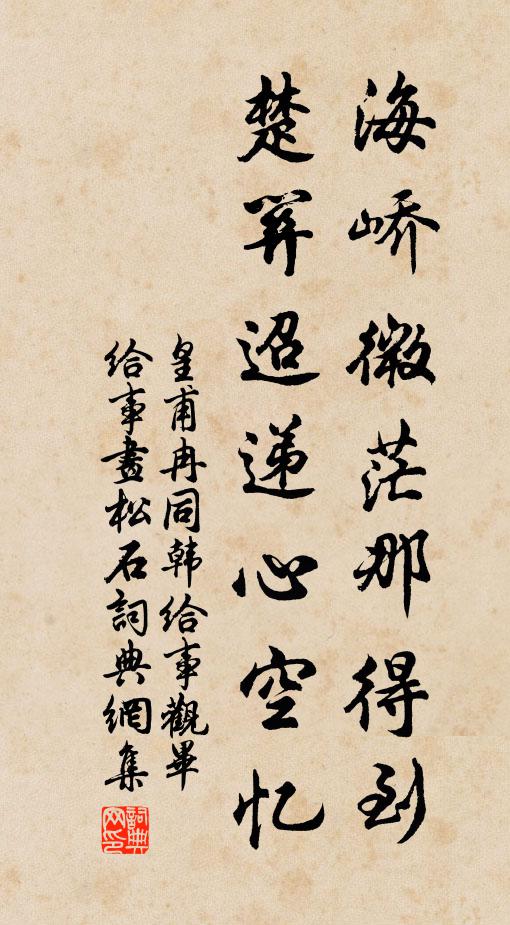 海峤微茫那得到
楚関迢递心空忆
皇甫冉同韩给事觀畢
给事畫松石詞典網集
詞典
网印